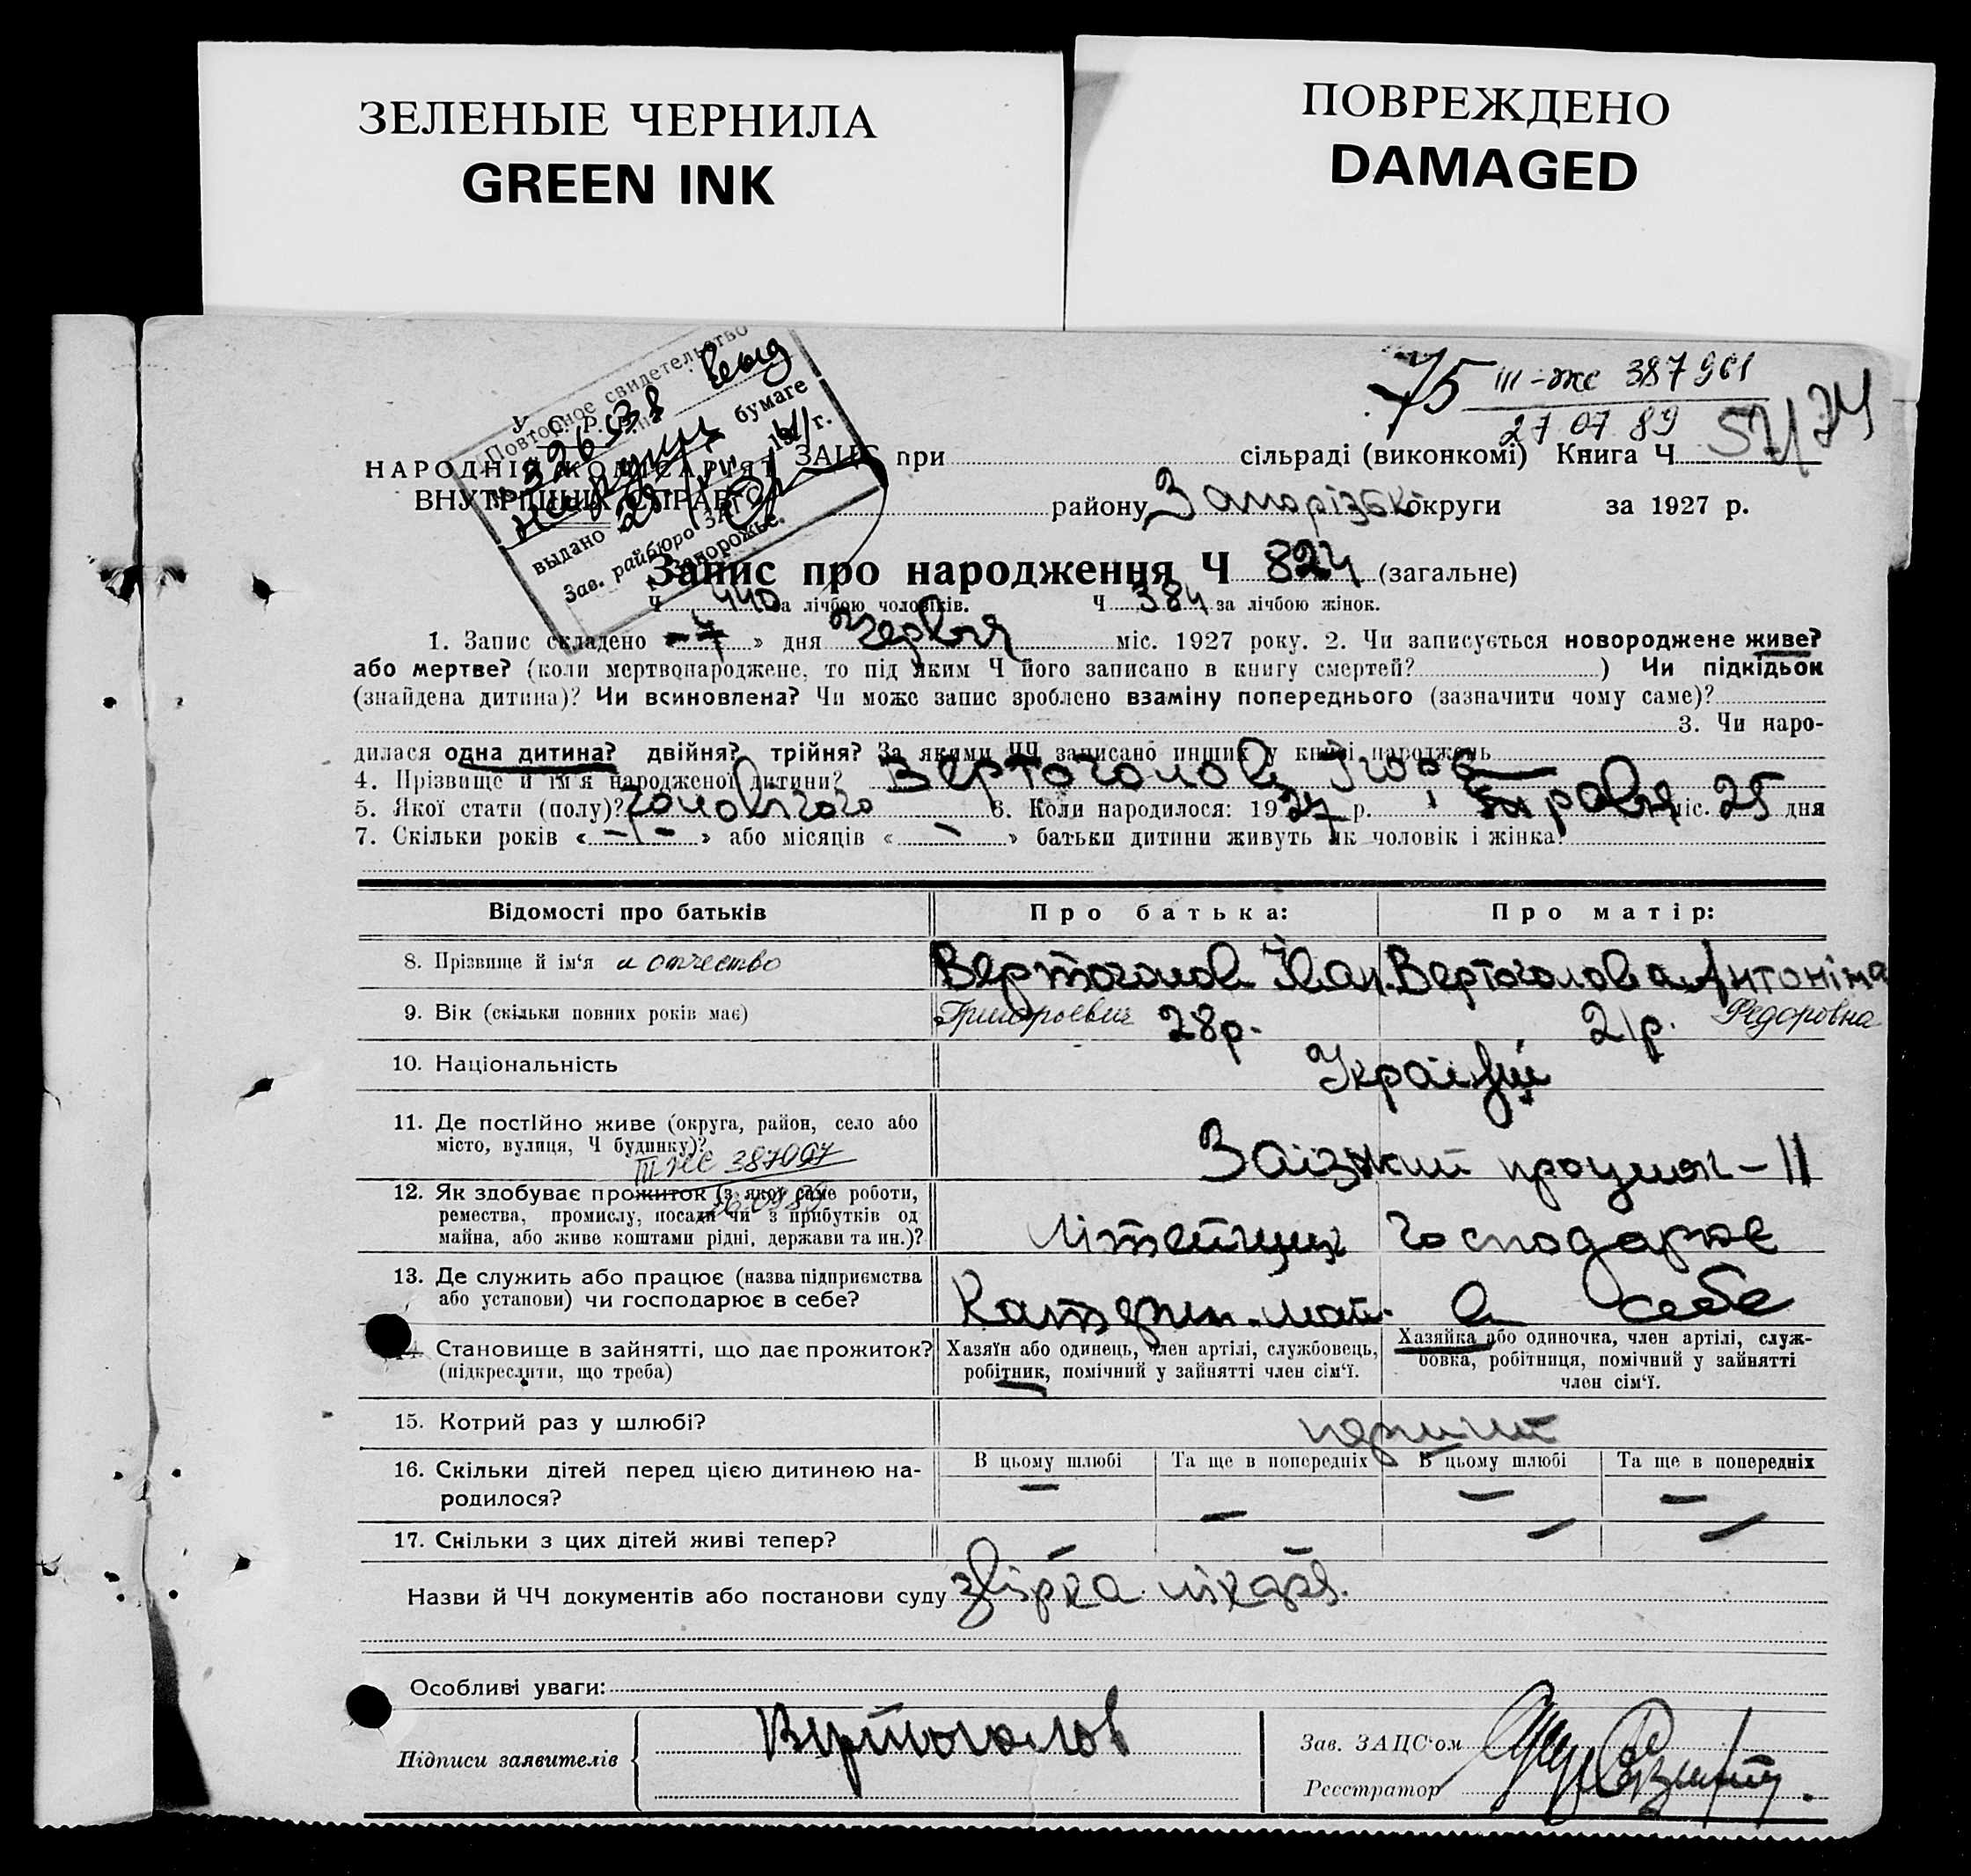 ЗЕЛЕНЫЕ ЧЕРНИЛА
GREEN INK
ПОВРЕЖДЕНО
DAMAGED
75 III-же 387961
27 07 89
У. С. Р. Р.
Повторное свидетельство
бумаге
выдано
Зав. райбюро ЗАГС
г. Запорожье.
НАРОДНІЙ КОМІСАРІЯТ
ВНУТРІШНІХ СПРАВ
ЗАЦС при сільраді (виконкомі) Книга Ч
району Запорізьк округи за 1927 р.
Запис про народження Ч 824 (загальне)
Ч 440 за лічбою чоловіків. Ч 384 за лічбою жінок.
1. Запис складено « 7 » дня червня міс. 1927 року. 2. Чи записується новороджене живе?
або мертве? (коли мертвонароджене, то під яким Ч його записано в книгу смертей? ) Чи підкідьок
(знайдена дитина)? Чи всиновлена? Чи може запис зроблено взаміну попереднього (зазначити чому саме)?
3. Чи наро-
дилася одна дитина? двійня? трійня? За якими ЧЧ записано инших у книзі народжень
4. Прізвище й ім'я народженої дитини? Вертоголов Ігорь
5. Якої стати (полу)? чоловічого 6. Коли народилося: 1927 р. травня міс. 25 дня
7. Скільки років « – » або місяців « – » батьки дитини живуть як чоловік і жінка?
Відомості про батьків Про батька: Про матір:
8. Прізвище й ім'я и отчество Вертоголов Іван. Вертоголова Антоніна
9. Вік (скільки повних років має) Григорьевич 28р. 21р. Федоровна
10. Національність Україн
11. Де постійно живе (округа, район, село або
місто, вулиця, Ч будинку)? Заїзжий проулок – 11
III ЖС 387097
12. Як здобуває прожиток (з якої саме роботи,
ремества, промислу, посади чи з прибутків од
майна, або живе коштами рідні, держави та ин.)? Літейщик господарює
13. Де служить або працює (назва підприємства
або установи) чи господарює в себе? Катерин. май. в себе
14. Становище в зайнятті, що дає прожиток?
(підкреслити, що треба)
Хазяїн або одинець, член артілі, службовець,
робітник, помічний у зайнятті член сім'ї.
Хазяйка або одиночка, член артілі, служ-
бовка, робітниця, помічний у зайнятті
член сім'ї.
15. Котрий раз у шлюбі? перший
16. Скільки дітей перед цією дитиною на-
родилося?
В цьому шлюбі Та ще в попередніх В цьому шлюбі Та ще в попередніх
– – – –
17. Скільки з цих дітей живі тепер? – – – –
Назви й ЧЧ документів або постанови суду звірка лікаря.
Особливі уваги:
Підписи заявителів Вертоголов
Зав. ЗАЦС'ом
Реєстратор